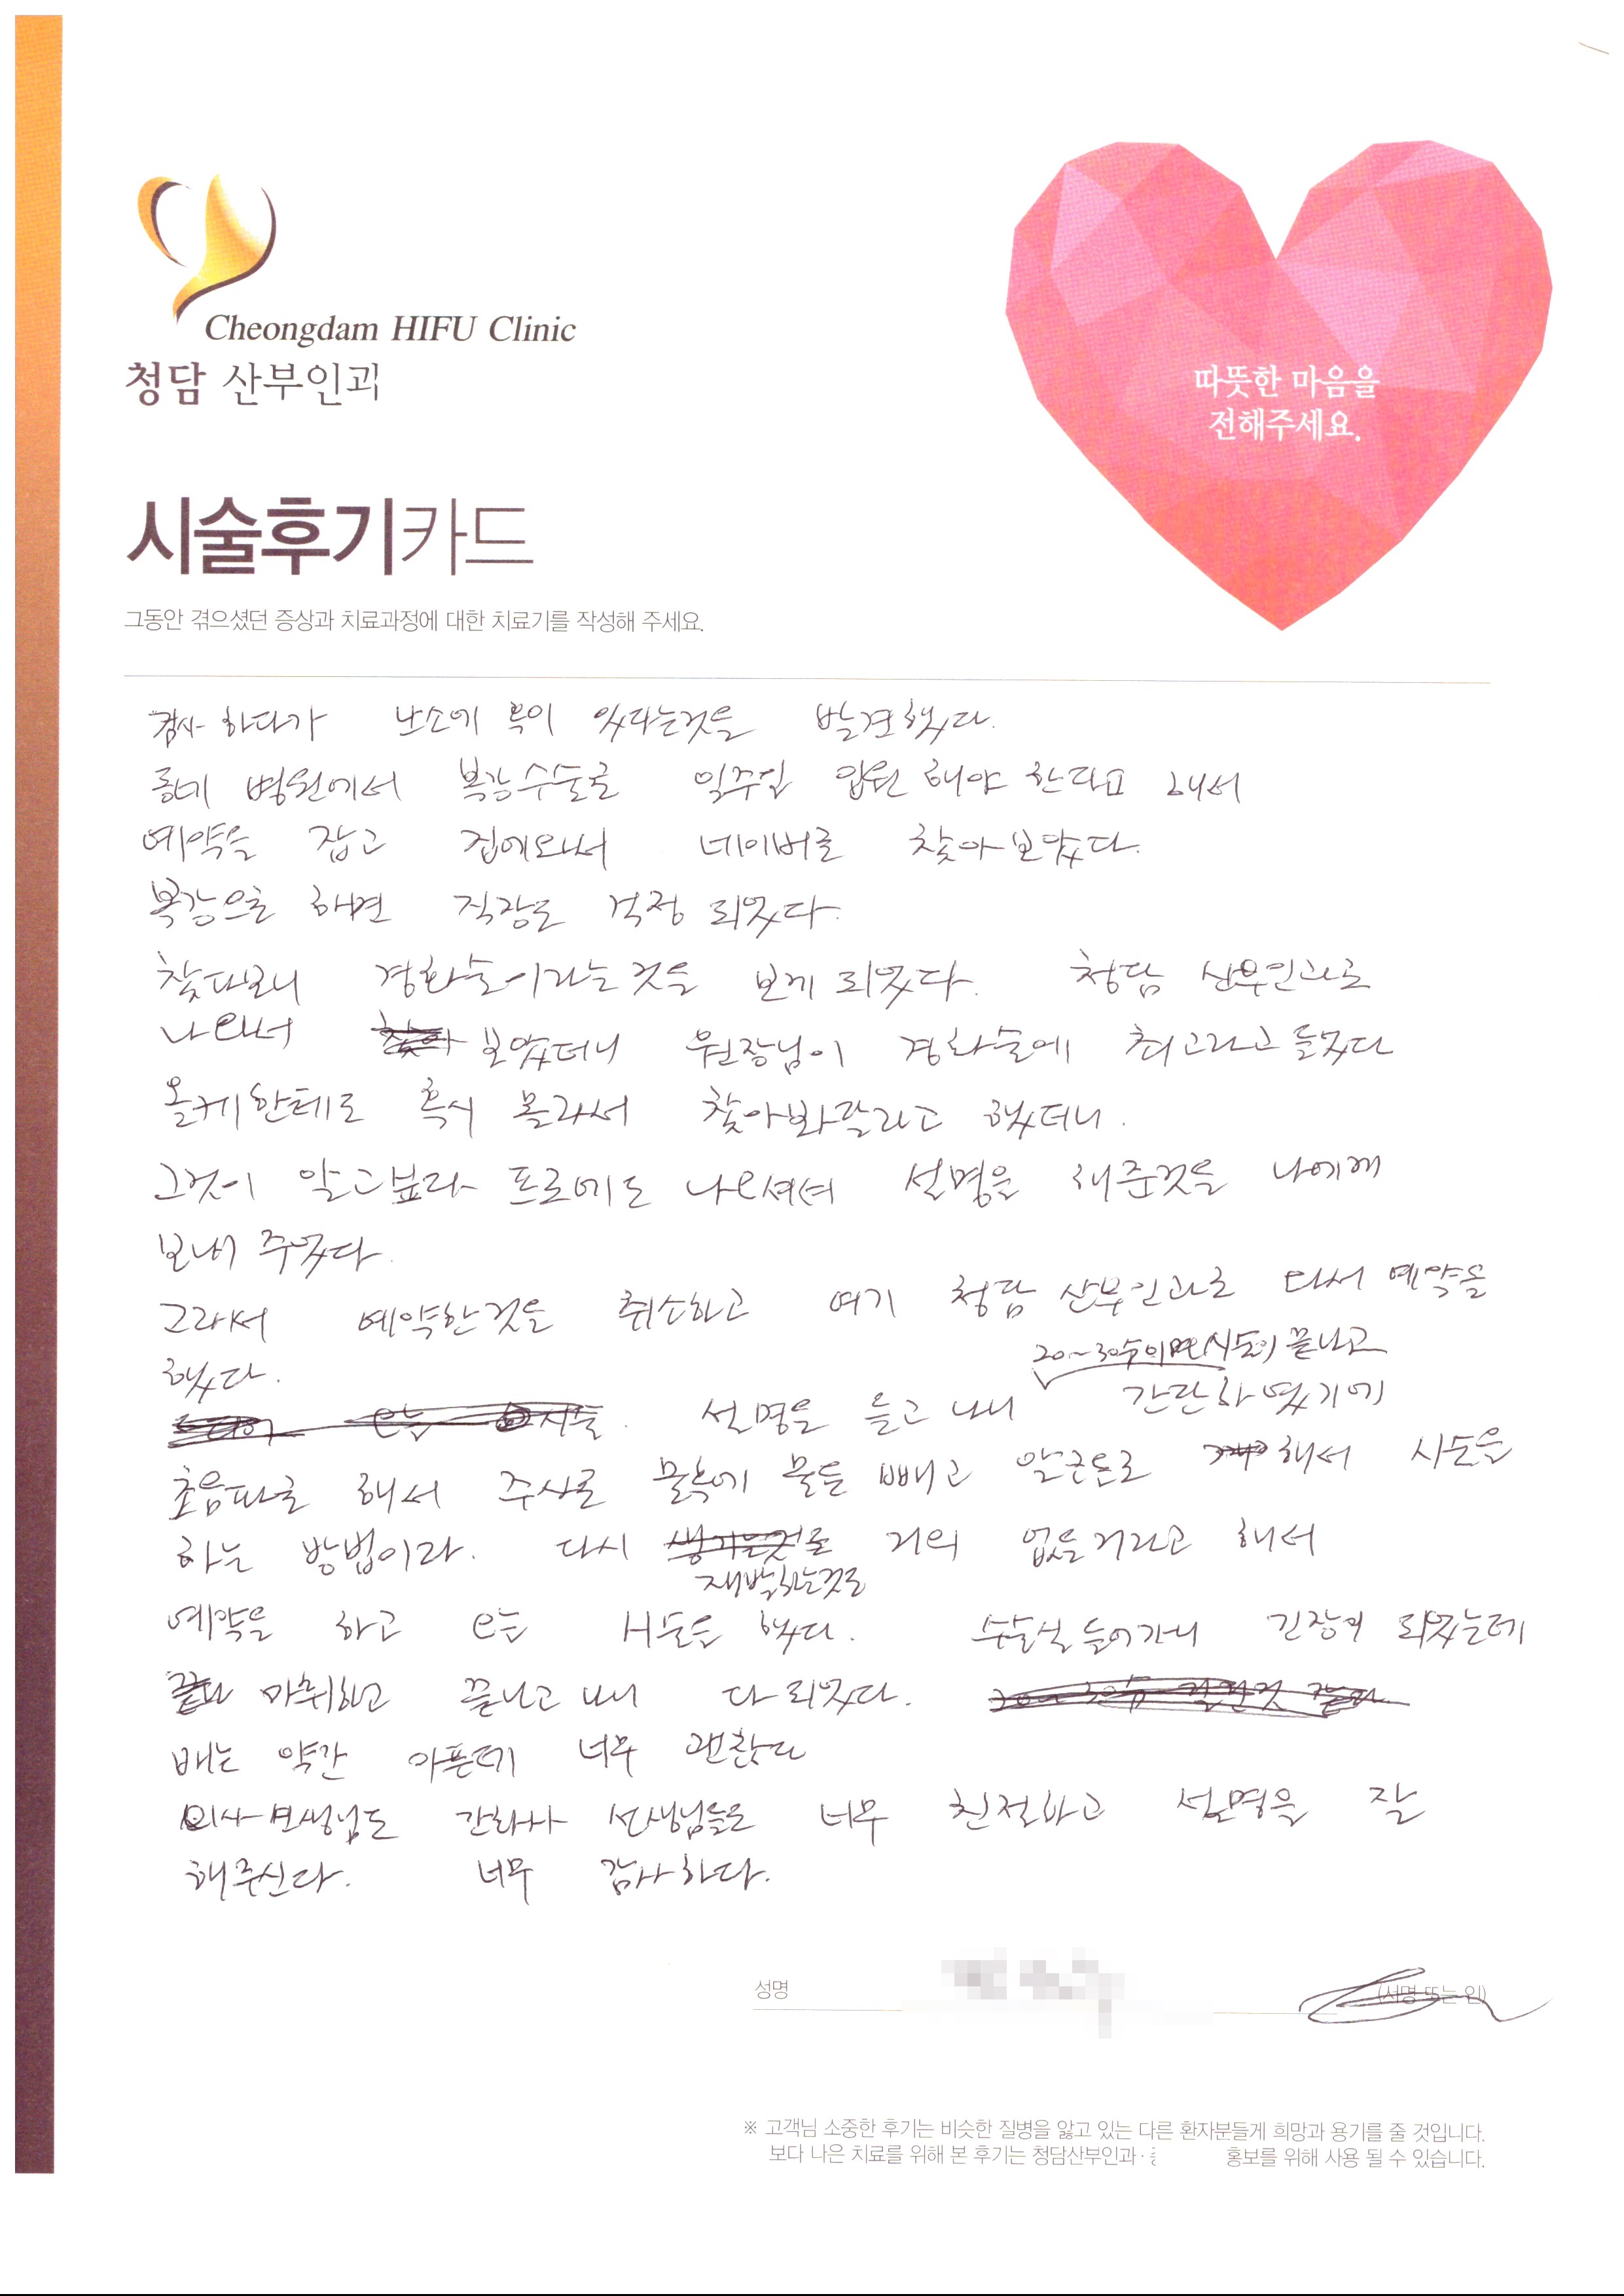 Cheongdam HIFU Clinic
청담 산부인과
따뜻한 마음을
전해주세요.
시술후기카드
그동안 겪으셨던 증상과 치료과정에 대한 치료기를 작성해 주세요.
검사 하다가 난소에 혹이 있다는것을 발견했다.
동네 병원에서 복강수술로 일주일 입원 해야 한다고 해서
예약을 잡고 집에와서 네이버로 찾아보았다.
복강으로 하면 직장도 걱정 되었다.
찾다보니 경화술이라는것을 보게 되었다. 청담 산부인과로
나와서 보았더니 원장님이 경화술에 최고라고 들었다
올케한테도 혹시 몰라서 찾아봐달라고 했더니.
그것이 알고싶다 프로에도 나오셔셔 설명을 해준것을 나에게
보내 주었다.
그래서 예약한것을 취소하고 여기 청담 산부인과로 다시 예약을
했다.
20~30분이면 시술이 끝나고
설명을 듣고 나니 간단하였기에
초음파를 해서 주사로 물혹에 물을 빼고 알콜로 해서 시술을
하는 방법이라. 다시 거의 없을거라고 해서
재발하는것도
예약을 하고 오늘 시술을 했다. 수술실 들어가니 긴장이 되었는데
마취하고 끝나고 나니 다 되었다.
배는 약간 아픈데 너무 괜찮다
의사선생님도 간호사 선생님들도 너무 친절하고 설명을 잘
해주신다. 너무 감사하다.
성명 (서명 또는 인)
※ 고객님 소중한 후기는 비슷한 질병을 앓고 있는 다른 환자분들게 희망과 용기를 줄 것입니다.
보다 나은 치료를 위해 본 후기는 청담산부인과· 홍보를 위해 사용 될 수 있습니다.